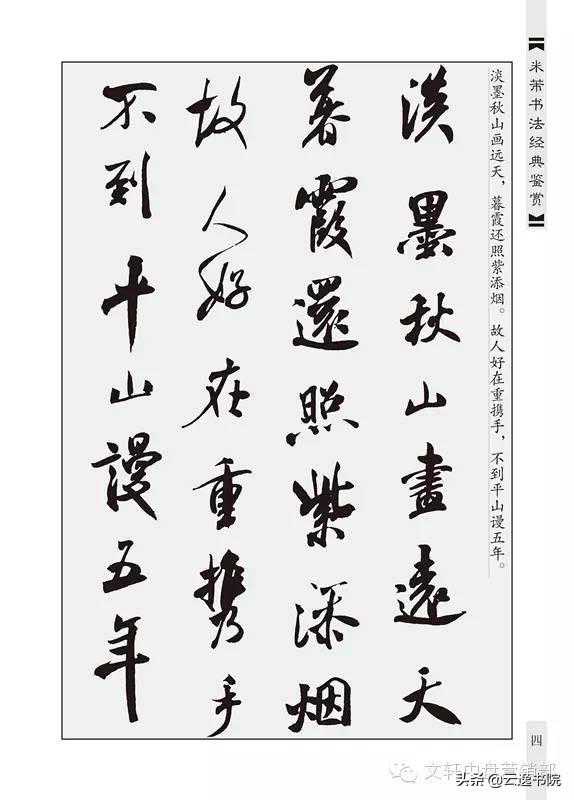 【米芾书法经典鉴赏】
淡墨秋山画远天，暮霞还照紫添烟。故人好在重携手，不到平山谩五年。
淡墨秋山畫遠天
暮霞還照紫添烟
故人好在重携手
不到平山謾五年
四
文轩中盘营销部
头条 @云逸书院